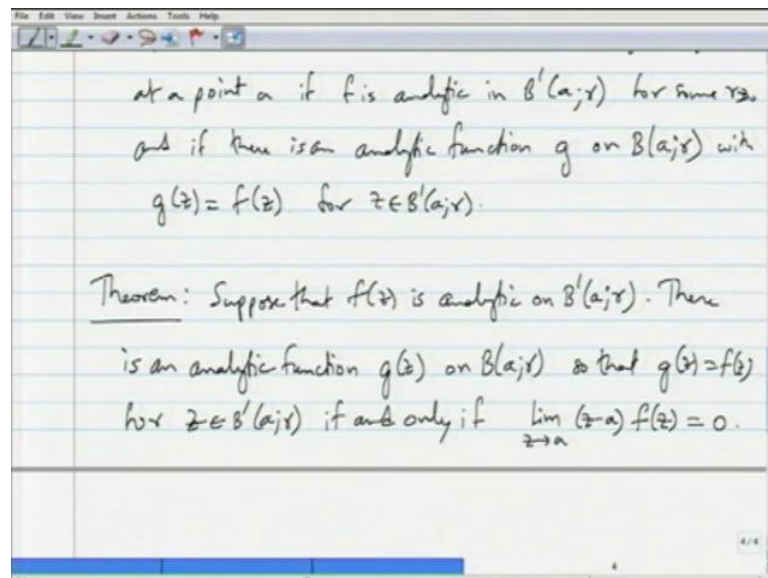 File Edit View Insert Actions Tools Help
at a point a if f is analytic in B'(a;r) for some r>0
and if there is an analytic function g on B(a;r) with
g(z) = f(z) for z∈B'(a;r).
Theorem: Suppose that f(z) is analytic on B'(a;r). There
is an analytic function g(z) on B(a;r) so that g(z)=f(z)
for z∈B'(a;r) if and only if lim z→a (z-a) f(z) = 0.
4/4
6